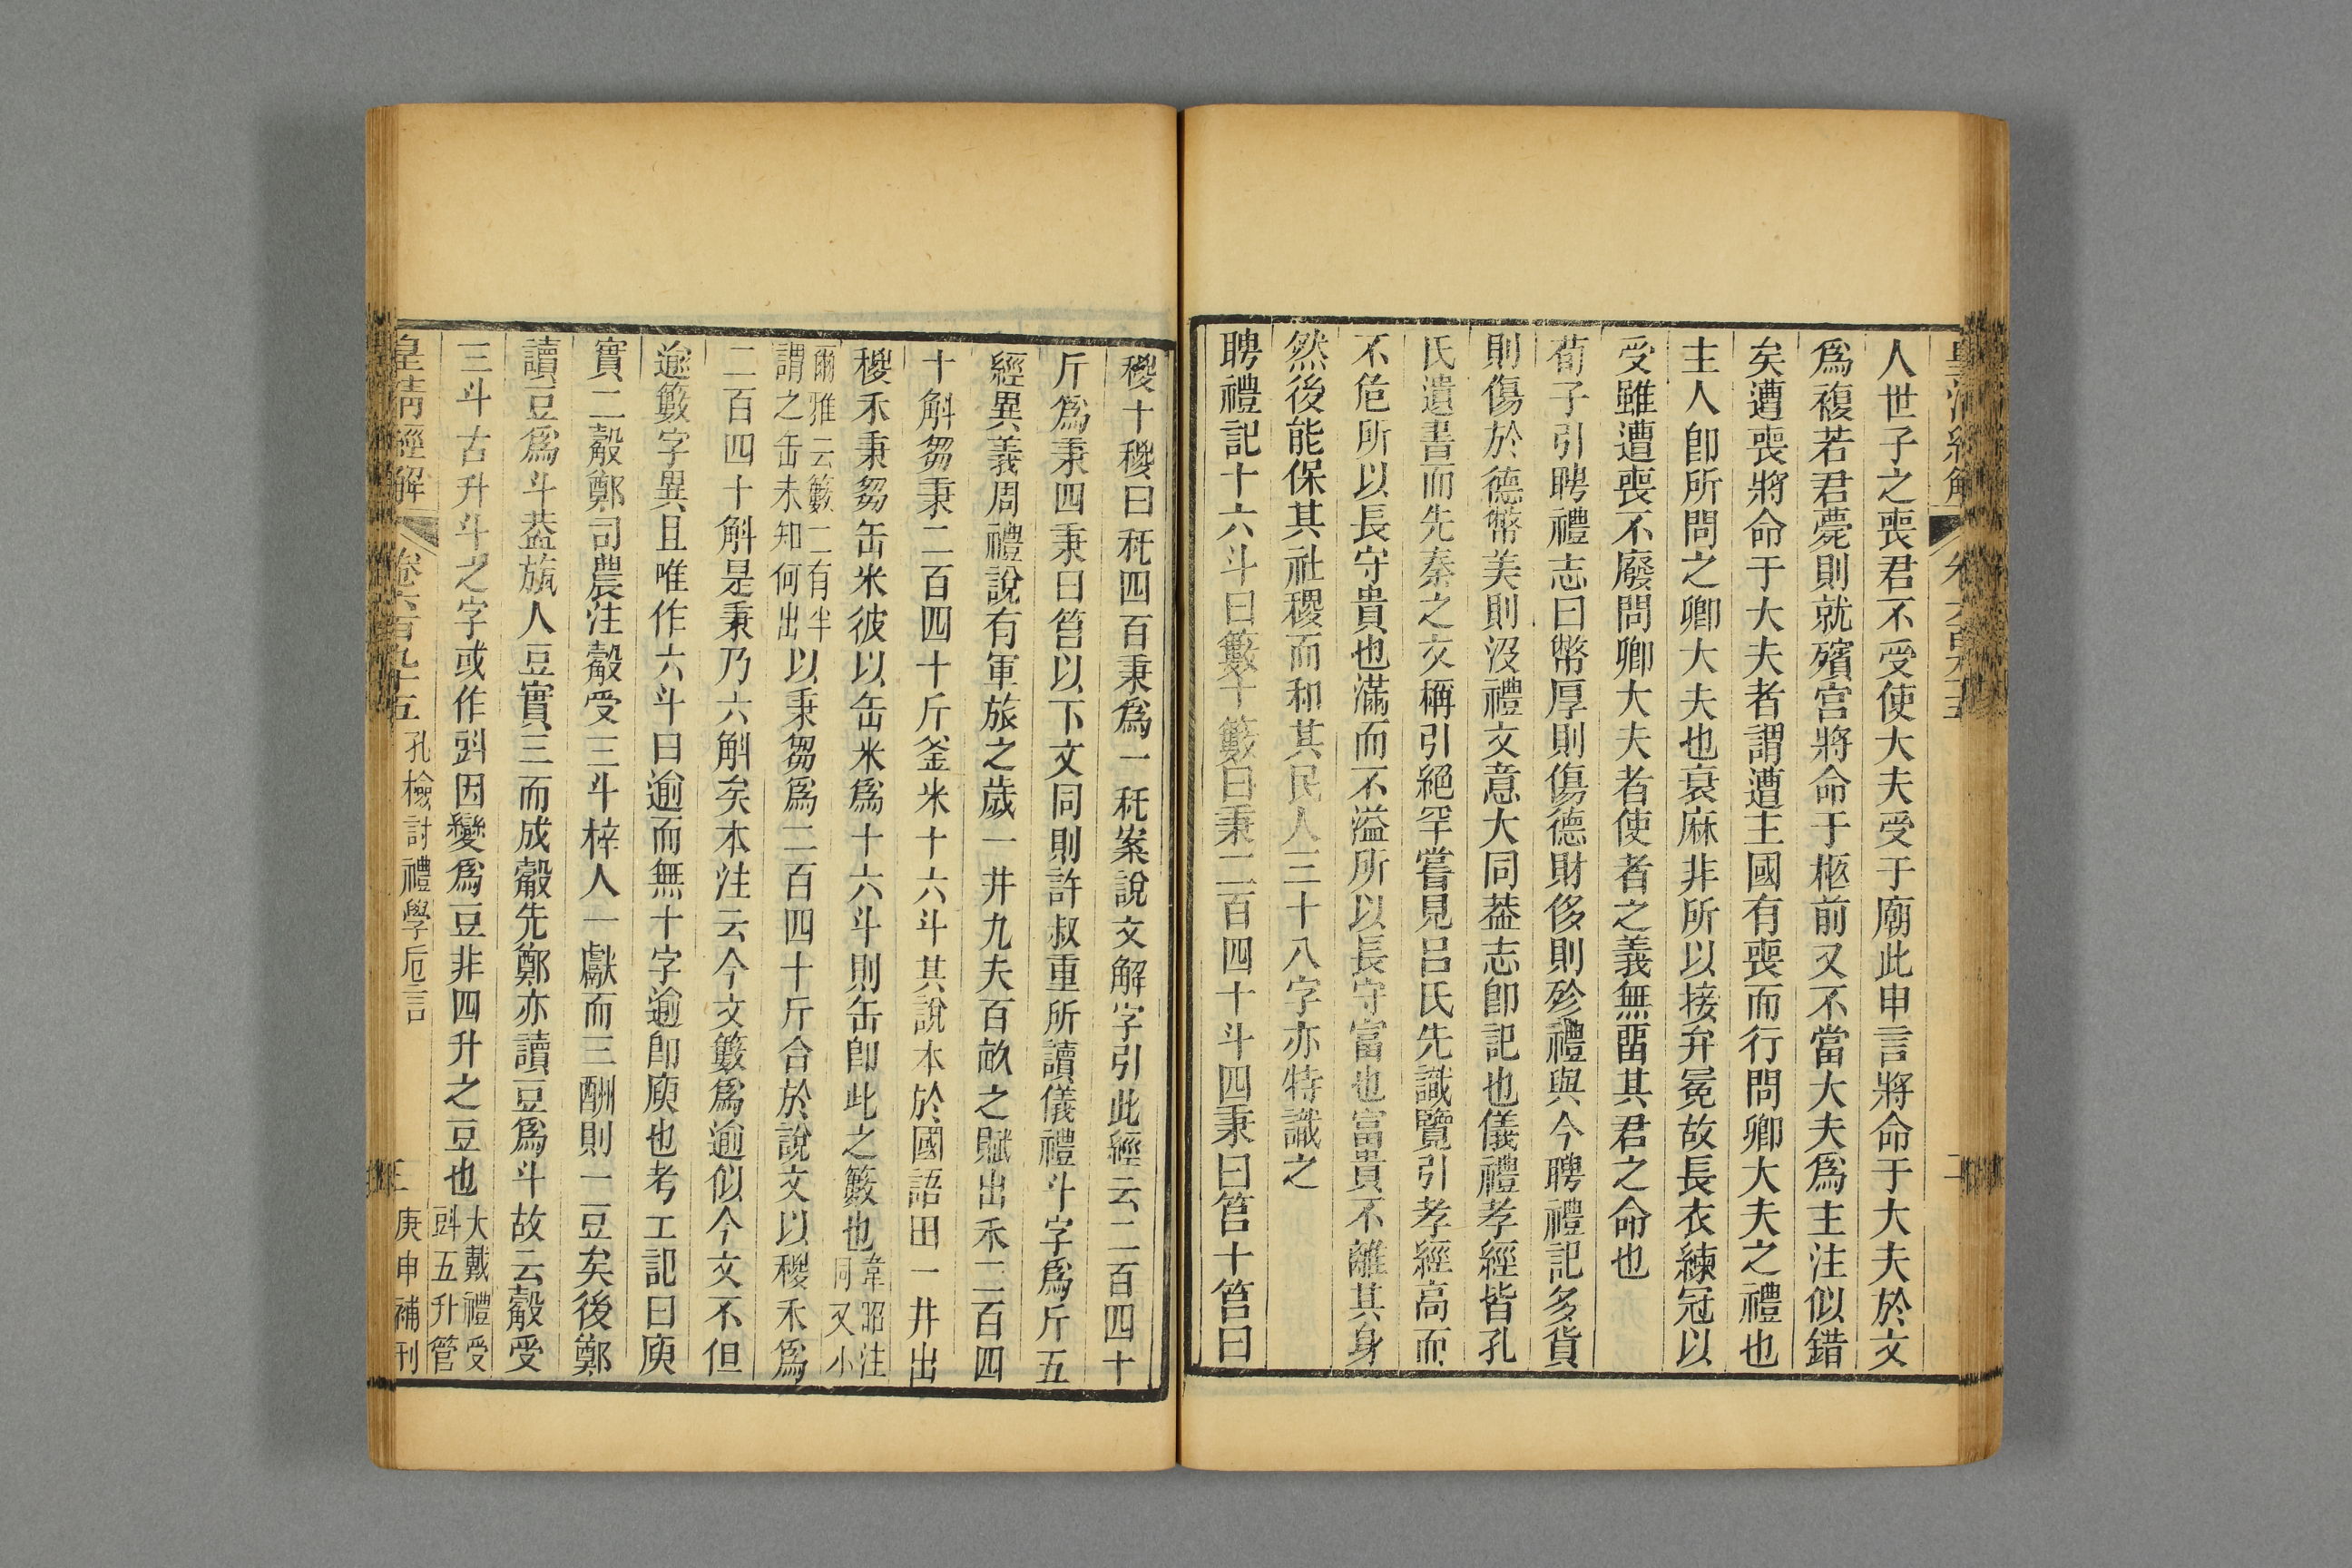 人世子之喪君不受使大夫受于廟此申言將命于大夫於文
爲複若君薨則就殯宮將命于柩前又不當大夫爲主注似錯
矣遭喪將命于大夫者謂遭主國有喪而行問卿大夫之禮也
主人卽所問之卿大夫也衰麻非所以接弁冕故長衣練冠以
受雖遭喪不廢問卿大夫者使者之義無畱其君之命也
荀子引聘禮志曰幣厚則傷德財侈則殄禮與今聘禮記多貨
則傷於德幣美則沒禮文意大同葢志卽記也儀禮孝經皆孔
氏遺書而先秦之文稱引絕罕嘗見呂氏先識覽引孝經高而
不危所以長守貴也滿而不溢所以長守富也富貴不離其身
然後能保其社稷而和其民人三十八字亦特識之
聘禮記十六斗曰籔十籔曰秉二百四十斗四秉曰筥十筥曰
稯十稯曰秅四百秉爲一秅案說文解字引此經云二百四十
斤爲秉四秉曰筥以下文同則許叔重所讀儀禮斗字爲斤五
經異義周禮說有軍旅之歲一井九夫百畝之賦出禾二百四
十斛芻秉二百四十斤釜米十六斗其說本於國語田一井出
稯禾秉芻缶米彼以缶米爲十六斗則缶卽此之籔也韋昭注同又小
爾雅云籔二有半謂之缶未知何出以秉芻爲二百四十斤合於說文以稯禾爲
二百四十斛是秉乃六斛矣本注云今文籔爲逾似今文不但
逾籔字異且唯作六斗曰逾而無十字逾卽庾也考工記曰庾
實二觳鄭司農注觳受三斗梓人一獻而三酬則一豆矣後鄭
讀豆爲斗葢旊人豆實三而成觳先鄭亦讀豆爲斗故云觳受
三斗古升斗之字或作㪷因變爲豆非四升之豆也大戴禮受㪷五升管
皇清經解 卷六百九十五 孔檢討禮學卮言 三 庚申補刊